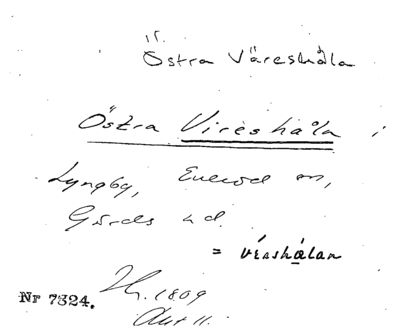 Östra Väreshåla
Östra Vireshåla i
Lyngby, Everöd sn,
Gärds hd.
= vérshålan
1809
Nr 7324.
Akt 11.